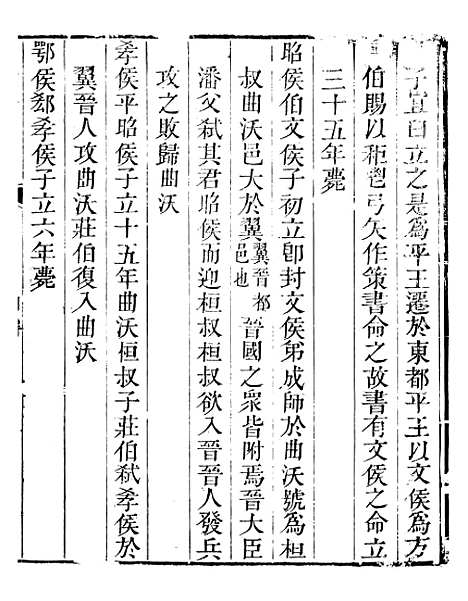 子宜臼立之是爲平王遷於東都平王以文侯爲方
伯賜以秬鬯弓矢作策書命之故書有文侯之命立
三十五年薨
昭侯伯文侯子初立卽封文侯弟成師於曲沃號爲桓
叔曲沃邑大於翼翼晉都邑也晉國之衆皆附焉晉大臣
潘父弑其君昭侯而迎桓叔桓叔欲入晉晉人發兵
攻之敗歸曲沃
孝侯平昭侯子立十五年曲沃桓叔子莊伯弑孝侯於
翼晉人攻曲沃莊伯復入曲沃
鄂侯郄孝侯子立六年薨